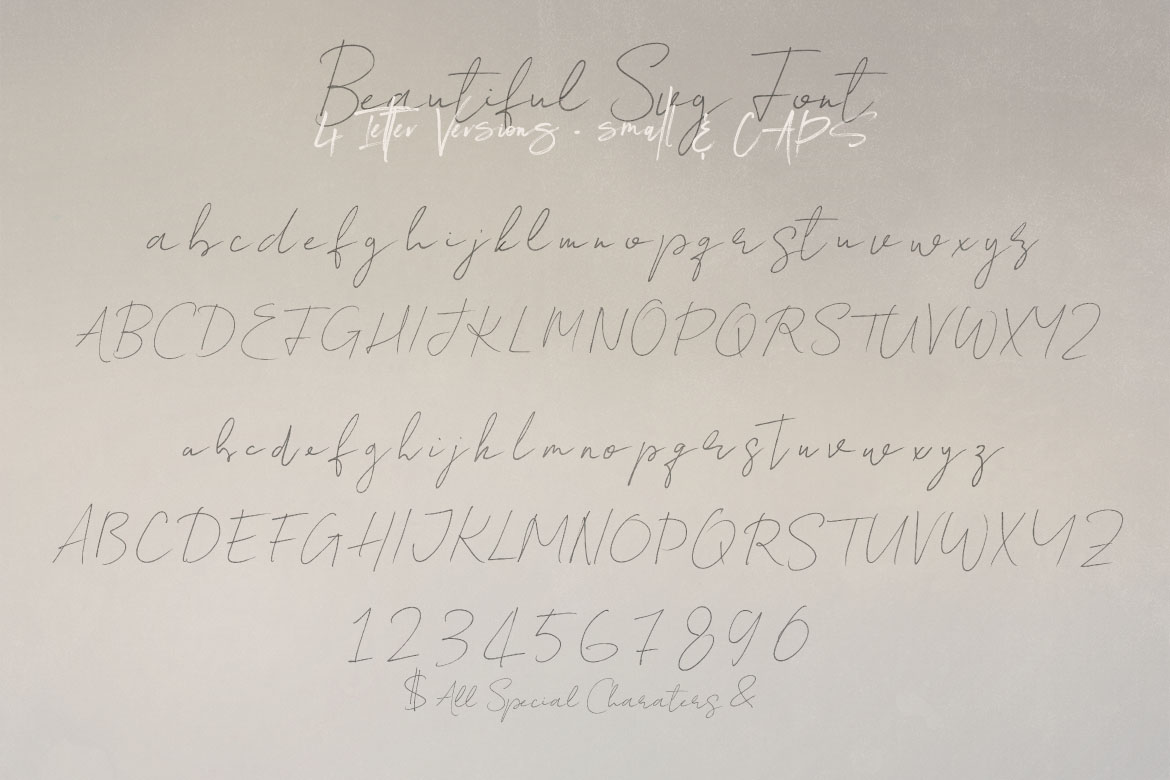 Beautiful Svg Font
4 letter Versions . small & CAPS
abcdefghijklmnopqrstuvwxyz
ABCDEFGHIJKLMNOPQRSTUVWXYZ
abcdefghijklmnopqrstuvwxyz
ABCDEFGHIJKLMNOPQRSTUVWXYZ
1234567890
$ All Special Charaters &